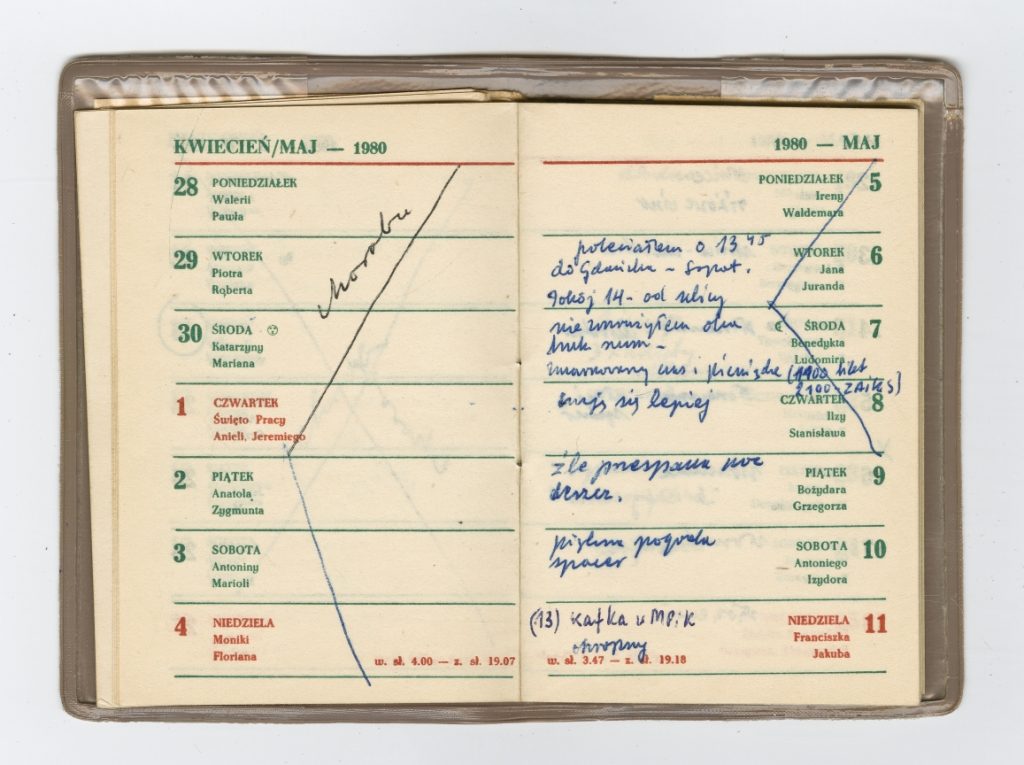 KWIECIEŃ/MAJ — 1980
28 PONIEDZIAŁEK
Walerii
Pawła
29 WTOREK
Piotra
Roberta
30 ŚRODA
Katarzyny
Mariana
choroba
1 CZWARTEK
Święto Pracy
Anieli, Jeremiego
2 PIĄTEK
Anatola
Zygmunta
3 SOBOTA
Antoniny
Marioli
4 NIEDZIELA
Moniki
Floriana
w. sł. 4.00 — z. sł. 19.07
1980 — MAJ
PONIEDZIAŁEK 5
Ireny
Waldemara
WTOREK 6
Jana
Juranda
poleciałem o 13 45
do Gdańska - Sopot.
Pokój 14 - od ulicy
ŚRODA 7
Benedykta
Ludomira
nie zmrużyłem oka
huk szum -
zmarnowany czas i pieniądze (1900 bilet
2100 ZAIKS)
CZWARTEK 8
Ilzy
Stanisława
czuję się lepiej
PIĄTEK 9
Bożydara
Grzegorza
źle przespana noc
deszcz.
SOBOTA 10
Antoniego
Izydora
piękna pogoda
spacer
NIEDZIELA 11
Franciszka
Jakuba
(13) Kafka w MPiK
okropny
w. sł. 3.47 — z. sł. 19.18